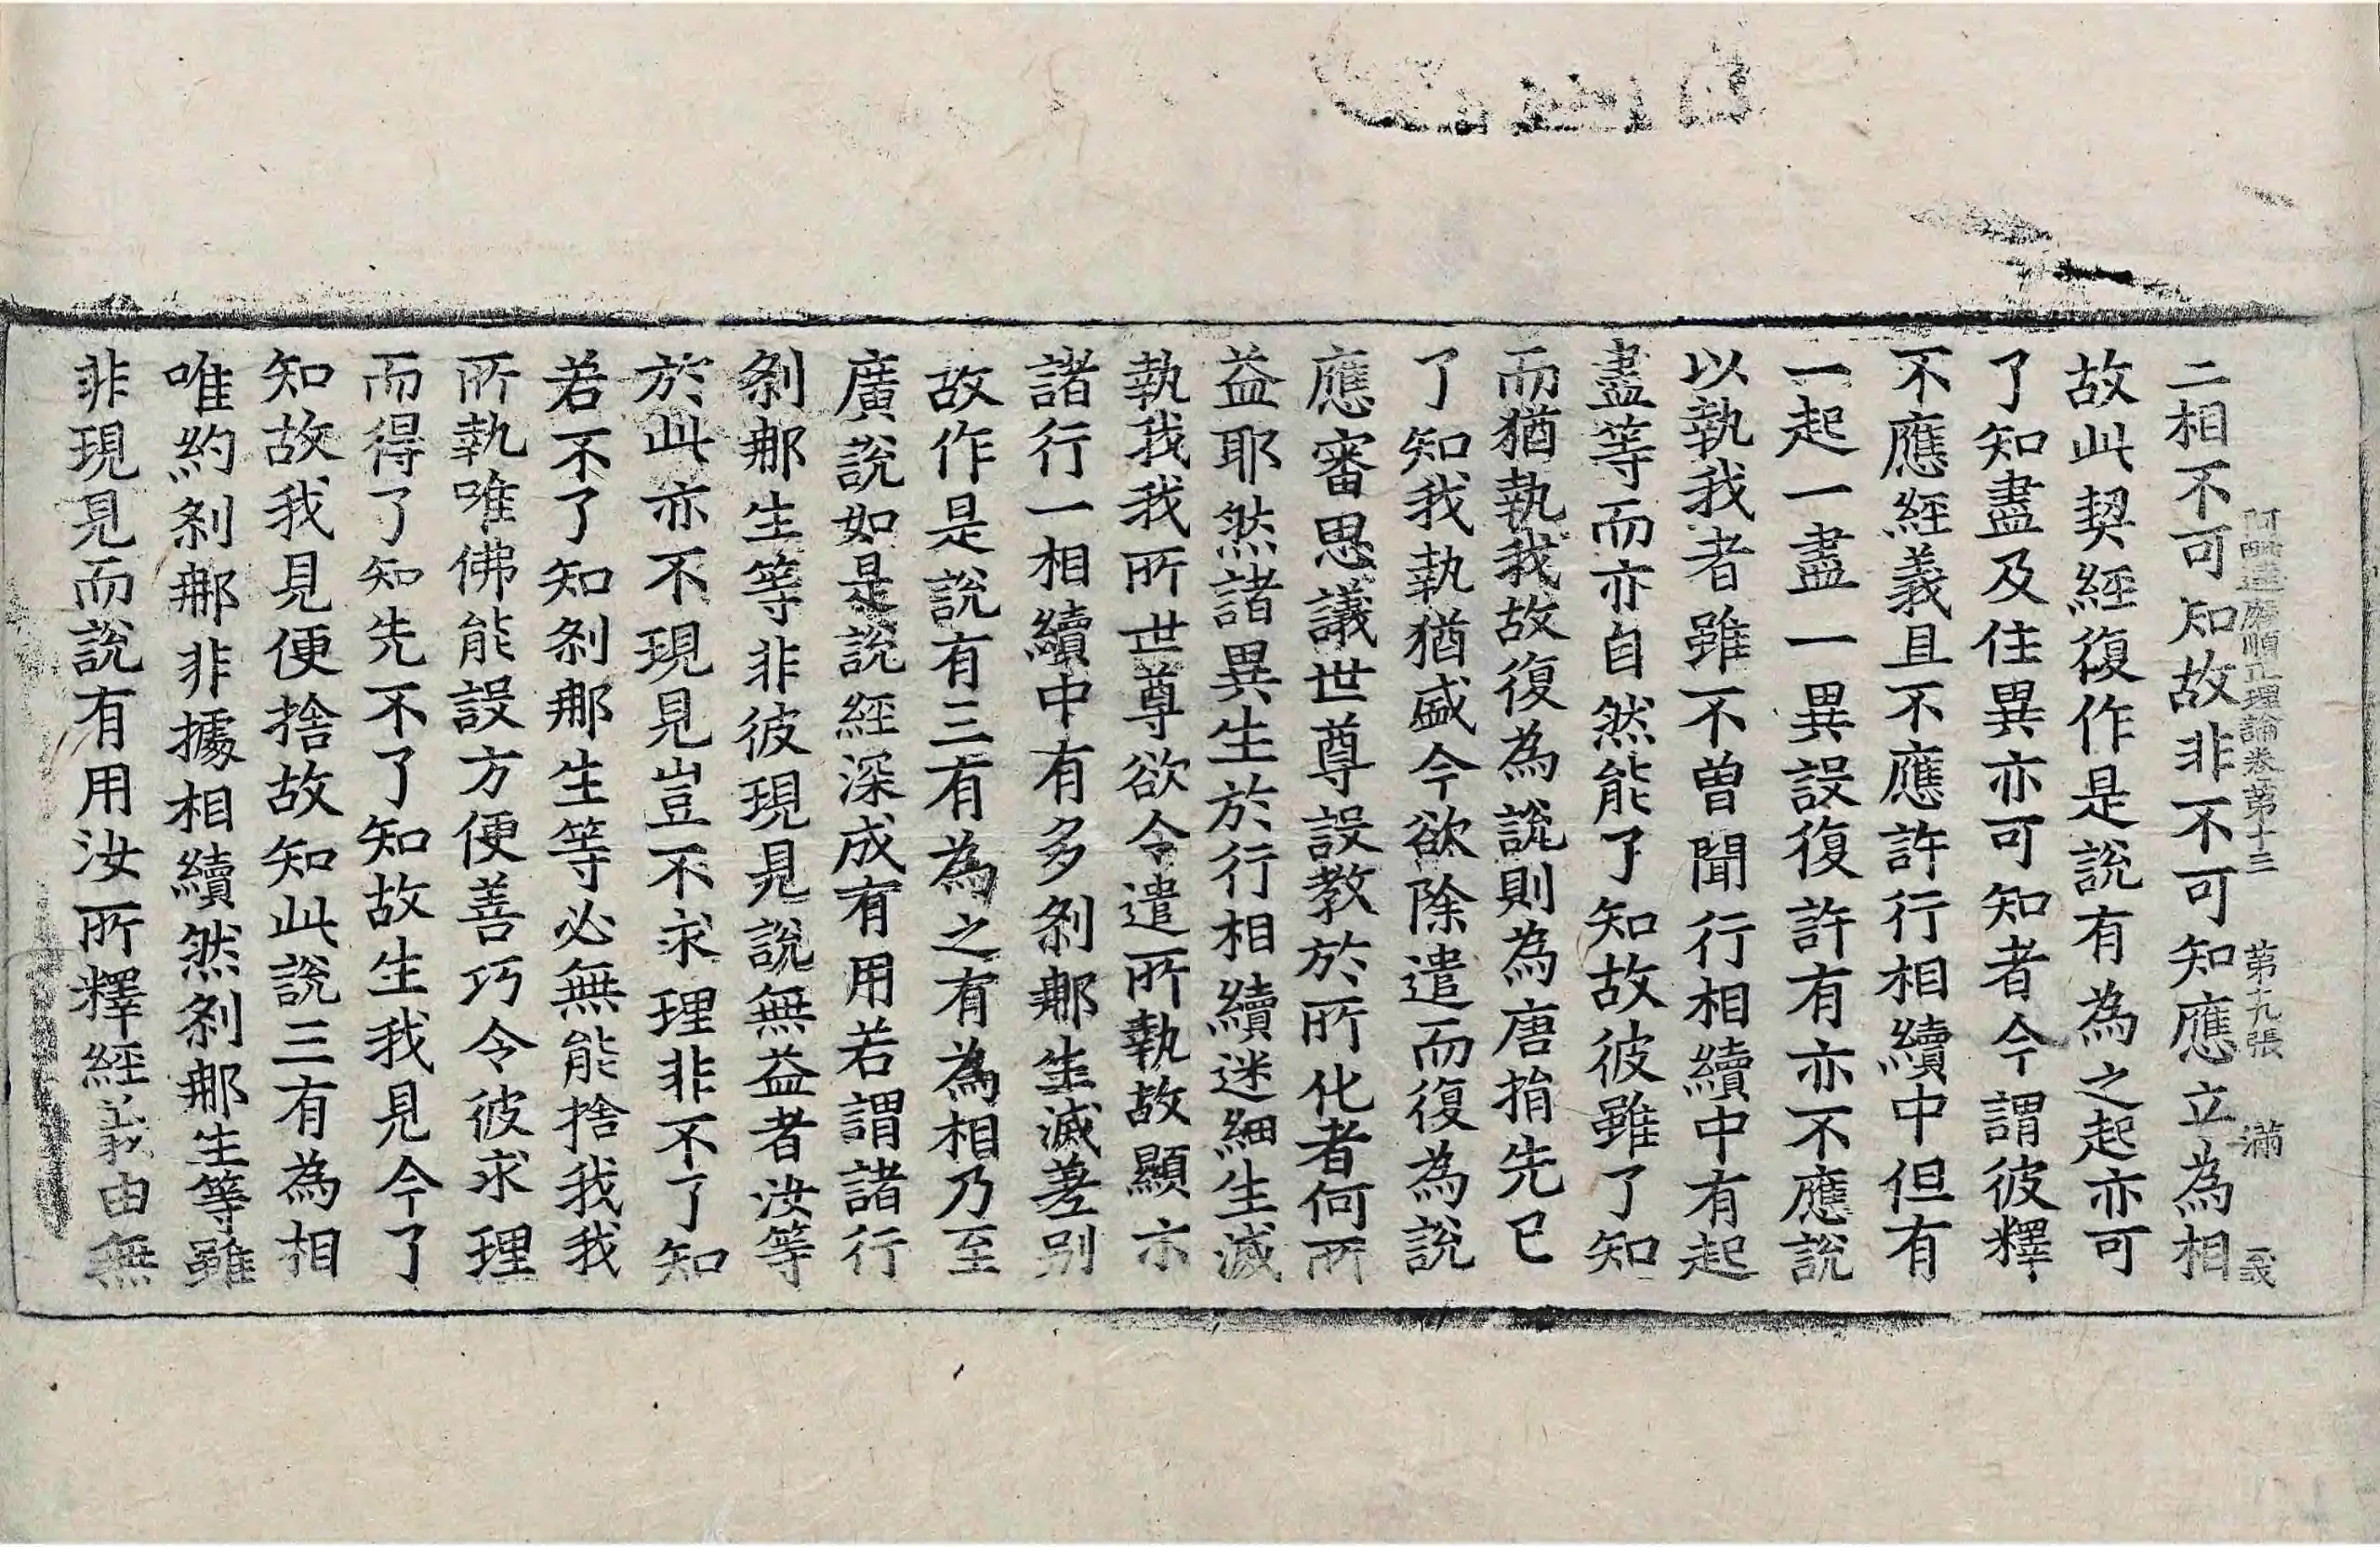 阿毗達磨順正理論卷第十三 第十九張 滿
二相不可知故非不可知應立為相
故此契經復作是說有為之起亦可
了知盡及住異亦可知者今謂彼釋
不應經義且不應許行相續中但有
一起一盡一異設復許有亦不應說
以執我者雖不曾聞行相續中有起
盡等而亦自然能了知故彼雖了知
而猶執我故復為說則為唐捐先已
了知我執猶盛今欲除遣而復為說
應審思議世尊設教於所化者何所
益耶然諸異生於行相續迷細生滅
執我我所世尊欲令遣所執故顯示
諸行一相續中有多剎那生滅差別
故作是說有三有為之有為相乃至
廣說如是說經深成有用若謂諸行
剎那生等非彼現見說無益者汝等
於此亦不現見豈不求理非不了知
若不了知剎那生等必無能捨我我
所執唯佛能設方便善巧令彼求理
而得了知先不了知故生我見今了
知故我見便捨故知此說三有為相
唯約剎那非據相續然剎那生等雖
非現見而說有用汝所釋經義由無